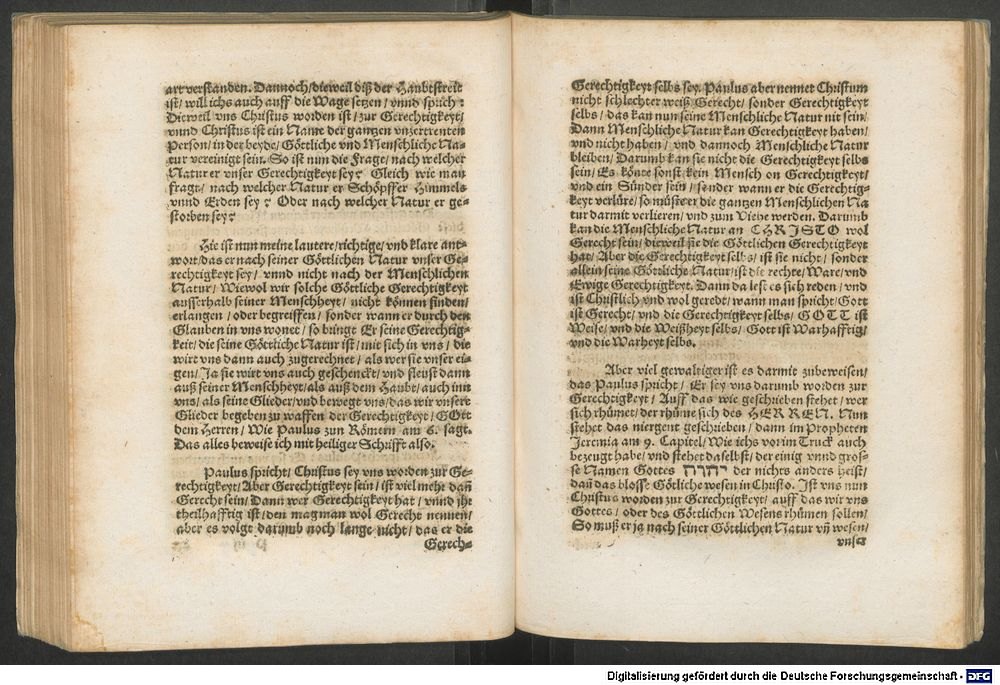 art verstanden. Dannoch/dieweil diß der Haubtstreit
ist/ will ichs auch auff die Wage setzen/ vnnd sprich:
Dieweil vns Christus worden ist/ zur Gerechtigkeyt/
vnnd Christus ist ein Name der gantzen vnzertrenten
Person/ in der beyde/ Göttliche vnd Menschliche Na-
tur vereinigt sein. So ist nun die Frage/ nach welcher
Natur er vnser Gerechtigkeyt sey? Gleich wie man
fragt/ nach welcher Natur er Schöpffer Himmels
vnnd Erden sey? Oder nach welcher Natur er ge-
storben sey?
Hie ist nun meine lautere/ richtige/ vnd klare ant-
wort/ das er nach seiner Göttlichen Natur vnser Ge-
rechtigkeyt sey/ vnnd nicht nach der Menschlichen
Natur/ Wiewol wir solche Göttliche Gerechtigkeyt
ausserhalb seiner Menschheyt/ nicht können finden/
erlangen/ oder begreiffen/ sonder wann er durch den
Glauben in vns wonet/ so bringt Er seine Gerechtig-
keit/ die seine Göttliche Natur ist/ mit sich in vns/ die
wirt vns dann auch zugerechnet/ als wer sie vnser ei-
gen/ Ja sie wirt vns auch geschenckt/ vnd fleust dann
auß seiner Menschheyt/ als auß dem Haubt/ auch inn
vns/ als seine Glieder/ vnd bewegt vns/ das wir vnsere
Glieder begeben zu waffen der Gerechtigkeyt/ GOtt
dem Herren/ Wie Paulus zun Römern am 6. sagt.
Das alles beweise ich mit heiliger Schrifft also.
Paulus spricht/ Christus sey vns worden zur Ge-
rechtigkeyt/ Aber Gerechtigkeyt sein/ ist viel mehr dañ
Gerecht sein/ Dann wer Gerechtigkeyt hat/ vnnd jhr
theilhafftig ist/ den mag man wol Gerecht nennen/
aber es volgt darumb noch lange nicht/ das er die
Gerech-
Gerechtigkeyt selbs sey. Paulus aber nennet Christum
nicht schlechter weiß Gerecht/ sonder Gerechtigkeyt
selbs/ das kan nun seine Menschliche Natur nit sein/
Dann Menschliche Natur kan Gerechtigkeyt haben/
vnd nicht haben/ vnd dannoch Menschliche Natur
bleiben/ Darumb kan sie nicht die Gerechtigkeyt selbs
sein/ Es könte sonst kein Mensch on Gerechtigkeyt/
vnd ein Sünder sein/ sonder wann er die Gerechtig-
keyt verlüre/ so müste er die gantzen Menschlichen Na
tur darmit verlieren/ vnd zum Viehe werden. Darumb
kan die Menschliche Natur an CHRISTO wol
Gerecht sein/ dieweil sie die Göttlichen Gerechtigkeyt
hat/ Aber die Gerechtigkeyt selbs/ ist sie nicht/ sonder
allein seine Göttliche Natur/ ist die rechte/ Ware/ vnd
Ewige Gerechtigkeyt. Dann da lest es sich reden/ vnd
ist Christlich vnd wol geredt/ wann man spricht/ Gott
ist Gerecht/ vnd die Gerechtigkeyt selbs/ GOTT ist
Weise/ vnd die Weißheyt selbs/ Gott ist Warhafftig/
vnd die Warheyt selbs.
Aber viel gewaltiger ist es darmit zubeweisen/
das Paulus spricht/ Er sey vns darumb worden zur
Gerechtigkeyt/ Auff das wie geschrieben stehet/ wer
sich rhümet/ der rhüme sich des HERREN. Nun
stehet das niergent geschrieben/ dann im Propheten
Jeremia am 9. Capitel/ Wie ichs vor im Truck auch
bezeugt habe/ vnd stehet daselbst/ der einig vnnd gros-
se Namen Gottes יהוה der nichts anders heist/
dañ das blosse Götliche wesen in Christo. Ist vns nun
Christus worden zur Gerechtigkeyt/ auff das wir vns
Gottes/ oder des Göttlichen Wesens rhümen sollen/
So muß er ja nach seiner Göttlichen Natur vñ wesen/
vnser
Digitalisierung gefördert durch die Deutsche Forschungsgemeinschaft - DFG